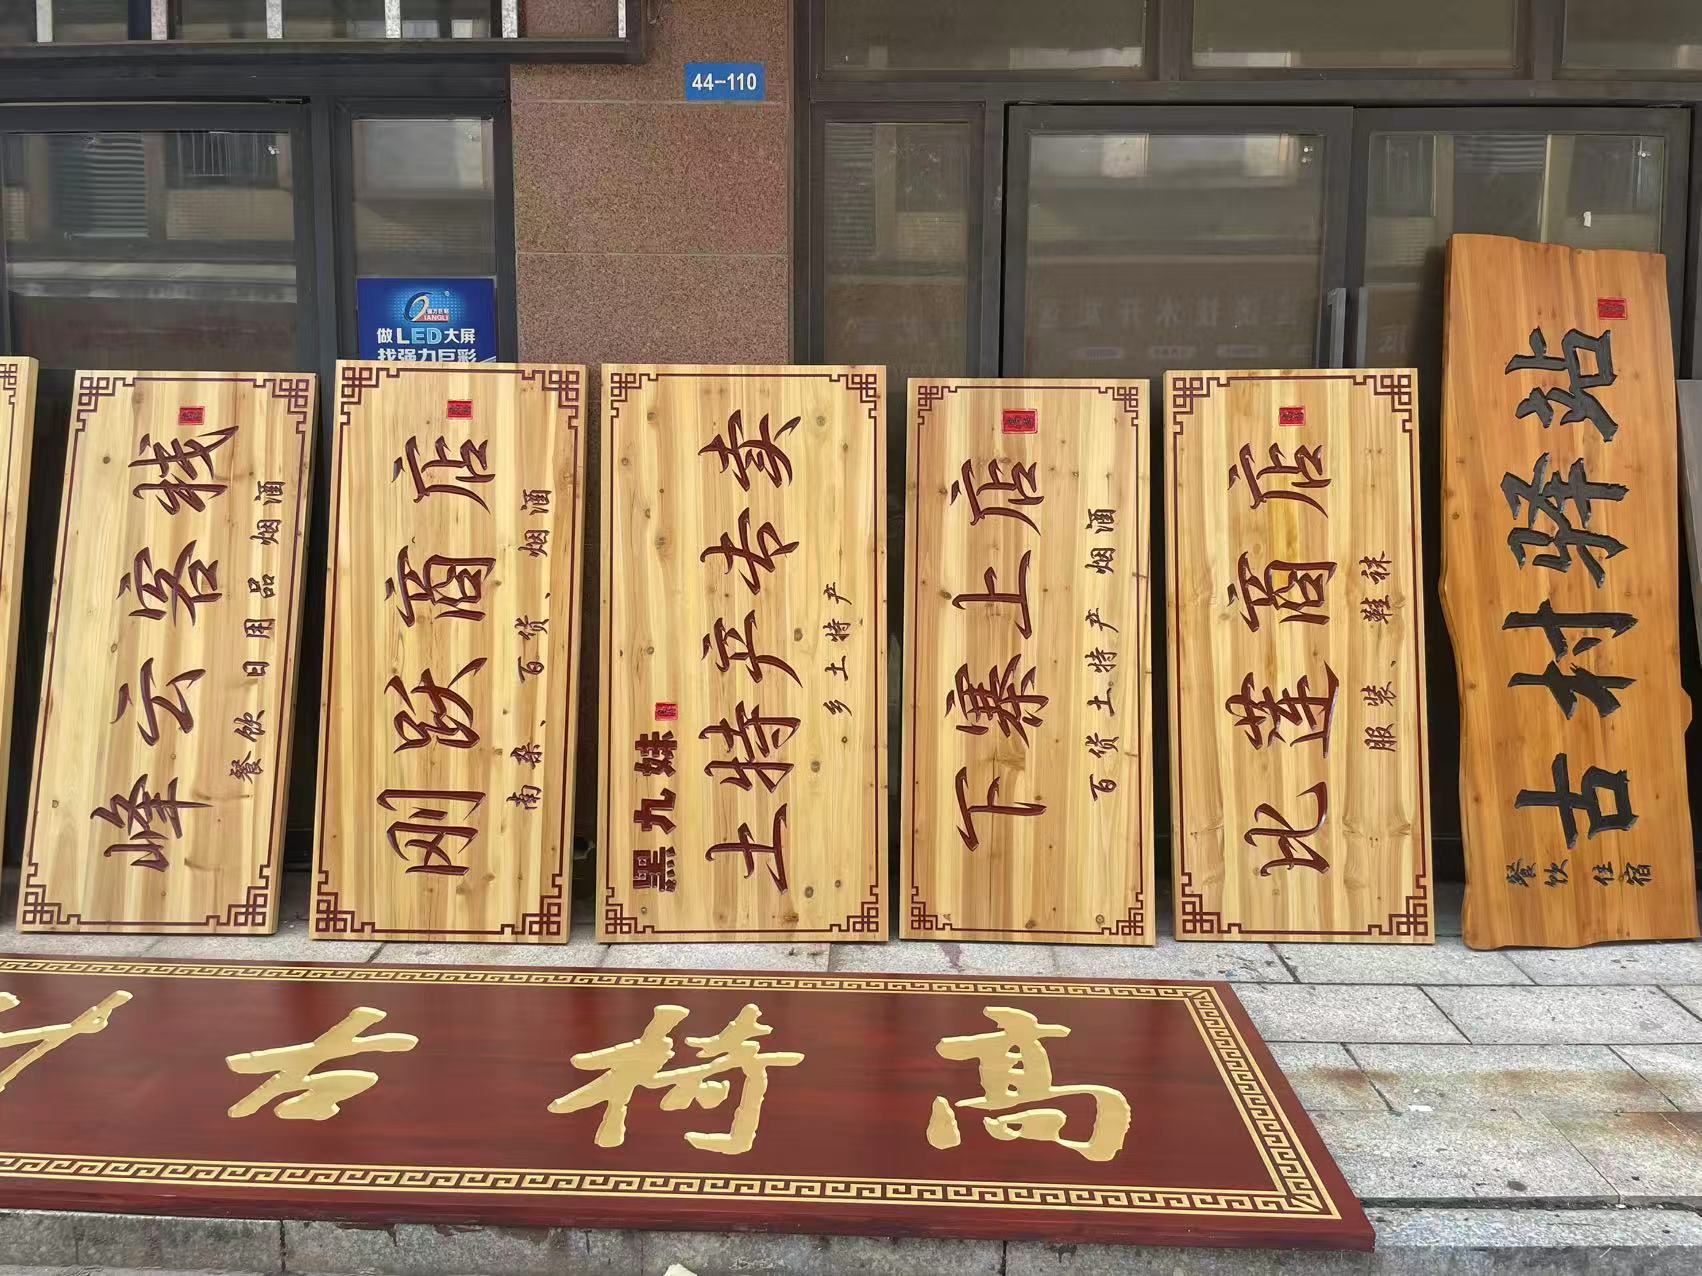 44-110
做LED大屏
找强力巨彩
峰云客栈
餐饮 日用品 烟酒
刚跃商店
南杂、百货、烟酒
黑九妹
土特产专卖
乡土特产
下寨上店
百货土特产烟酒
比莲商店
服装、鞋袜
古村驿站
餐饮住宿
高椅古